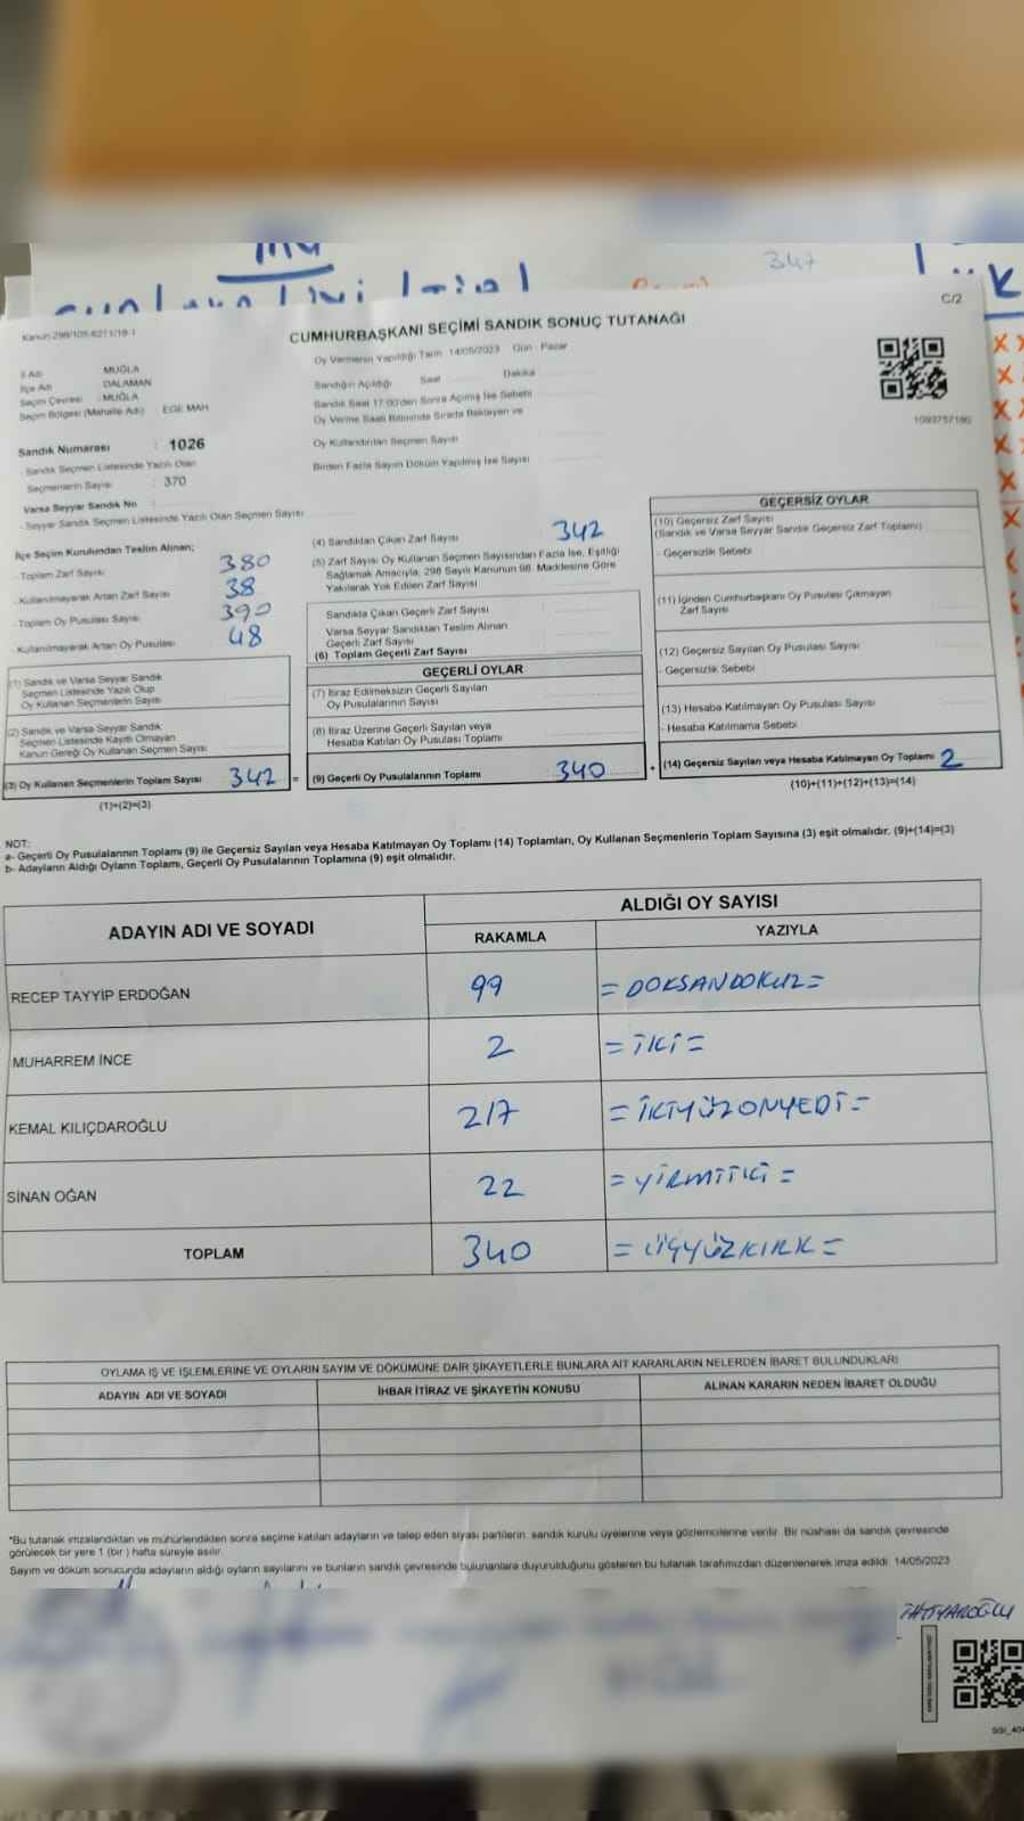 347
C/2
Kanun 298/105-6271/18-1
CUMHURBAŞKANI SEÇİMİ SANDIK SONUÇ TUTANAĞI
Oy Vermenin Yapıldığı Tarih 14/05/2023 Gün : Pazar
İl Adı MUĞLA
İlçe Adı DALAMAN
Seçim Çevresi : MUĞLA
Seçim Bölgesi (Mahalle Adı) EGE MAH
Sandığın Açıldığı Saat Dakika
Sandık Saat 17:00'den Sonra Açılmış İse Sebebi
Oy Verme Saati Bitiminde Sırada Bekleyen ve
Oy Kullandırılan Seçmen Sayısı
Birden Fazla Sayım Döküm Yapılmış İse Sayısı
1093757190
Sandık Numarası : 1026
Sandık Seçmen Listesinde Yazılı Olan
Seçmenlerin Sayısı : 370
Varsa Seyyar Sandık No
- Seyyar Sandık Seçmen Listesinde Yazılı Olan Seçmen Sayısı
İlçe Seçim Kurulundan Teslim Alınan;
- Toplam Zarf Sayısı 380
- Kullanılmayarak Artan Zarf Sayısı 38
- Toplam Oy Pusulası Sayısı 390
- Kullanılmayarak Artan Oy Pusulası 48
(1) Sandık ve Varsa Seyyar Sandık
Seçmen Listesinde Yazılı Olup
Oy Kullanan Seçmenlerin Sayısı
(2) Sandık ve Varsa Seyyar Sandık
Seçmen Listesinde Kayıtlı Olmayan
Kanun Gereği Oy Kullanan Seçmen Sayısı
(3) Oy Kullanan Seçmenlerin Toplam Sayısı 342 =
(1)+(2)=(3)
(4) Sandıktan Çıkan Zarf Sayısı 342
(5) Zarf Sayısı Oy Kullanan Seçmen Sayısından Fazla İse, Eşitliği
Sağlamak Amacıyla, 298 Sayılı Kanunun 98. Maddesine Göre
Yakılarak Yok Edilen Zarf Sayısı
Sandıkta Çıkan Geçerli Zarf Sayısı
Varsa Seyyar Sandıktan Teslim Alınan
Geçerli Zarf Sayısı
(6) Toplam Geçerli Zarf Sayısı
GEÇERLİ OYLAR
(7) İtiraz Edilmeksizin Geçerli Sayılan
Oy Pusulalarının Sayısı
(8) İtiraz Üzerine Geçerli Sayılan veya
Hesaba Katılan Oy Pusulası Toplamı
(9) Geçerli Oy Pusulalarının Toplamı 340 +
GEÇERSİZ OYLAR
(10) Geçersiz Zarf Sayısı
(Sandık ve Varsa Seyyar Sandık Geçersiz Zarf Toplamı)
- Geçersizlik Sebebi
(11) İçinden Cumhurbaşkanı Oy Pusulası Çıkmayan
Zarf Sayısı
(12) Geçersiz Sayılan Oy Pusulası Sayısı
- Geçersizlik Sebebi
(13) Hesaba Katılmayan Oy Pusulası Sayısı
- Hesaba Katılmama Sebebi
(14) Geçersiz Sayılan veya Hesaba Katılmayan Oy Toplamı 2
(10)+(11)+(12)+(13)=(14)
NOT:
a- Geçerli Oy Pusulalarının Toplamı (9) ile Geçersiz Sayılan veya Hesaba Katılmayan Oy Toplamı (14) Toplamları, Oy Kullanan Seçmenlerin Toplam Sayısına (3) eşit olmalıdır. (9)+(14)=(3)
b- Adayların Aldığı Oyların Toplamı, Geçerli Oy Pusulalarının Toplamına (9) eşit olmalıdır.
ADAYIN ADI VE SOYADI ALDIĞI OY SAYISI
RAKAMLA YAZIYLA
RECEP TAYYİP ERDOĞAN 99 = DOKSANDOKUZ =
MUHARREM İNCE 2 = İKİ =
KEMAL KILIÇDAROĞLU 217 = İKİYÜZONYEDİ =
SİNAN OĞAN 22 = YİRMİİKİ =
TOPLAM 340 = ÜÇYÜZKIRK =
OYLAMA İŞ VE İŞLEMLERİNE VE OYLARIN SAYIM VE DÖKÜMÜNE DAİR ŞİKAYETLERLE BUNLARA AİT KARARLARIN NELERDEN İBARET BULUNDUKLARI
ADAYIN ADI VE SOYADI İHBAR İTİRAZ VE ŞİKAYETİN KONUSU ALINAN KARARIN NEDEN İBARET OLDUĞU
*Bu tutanak imzalandıktan ve mühürlendikten sonra seçime katılan adayların ve talep eden siyasi partilerin sandık kurulu üyelerine veya gözlemcilerine verilir. Bir nüshası da sandık çevresinde
görülecek bir yere 1 (bir ) hafta süreyle asılır.
Sayım ve döküm sonucunda adayların aldığı oyların sayılarını ve bunların sandık çevresinde bulunanlara duyurulduğunu gösteren bu tutanak tarafımızdan düzenlenerek imza edildi. 14/05/2023
İHTİYAROĞLU